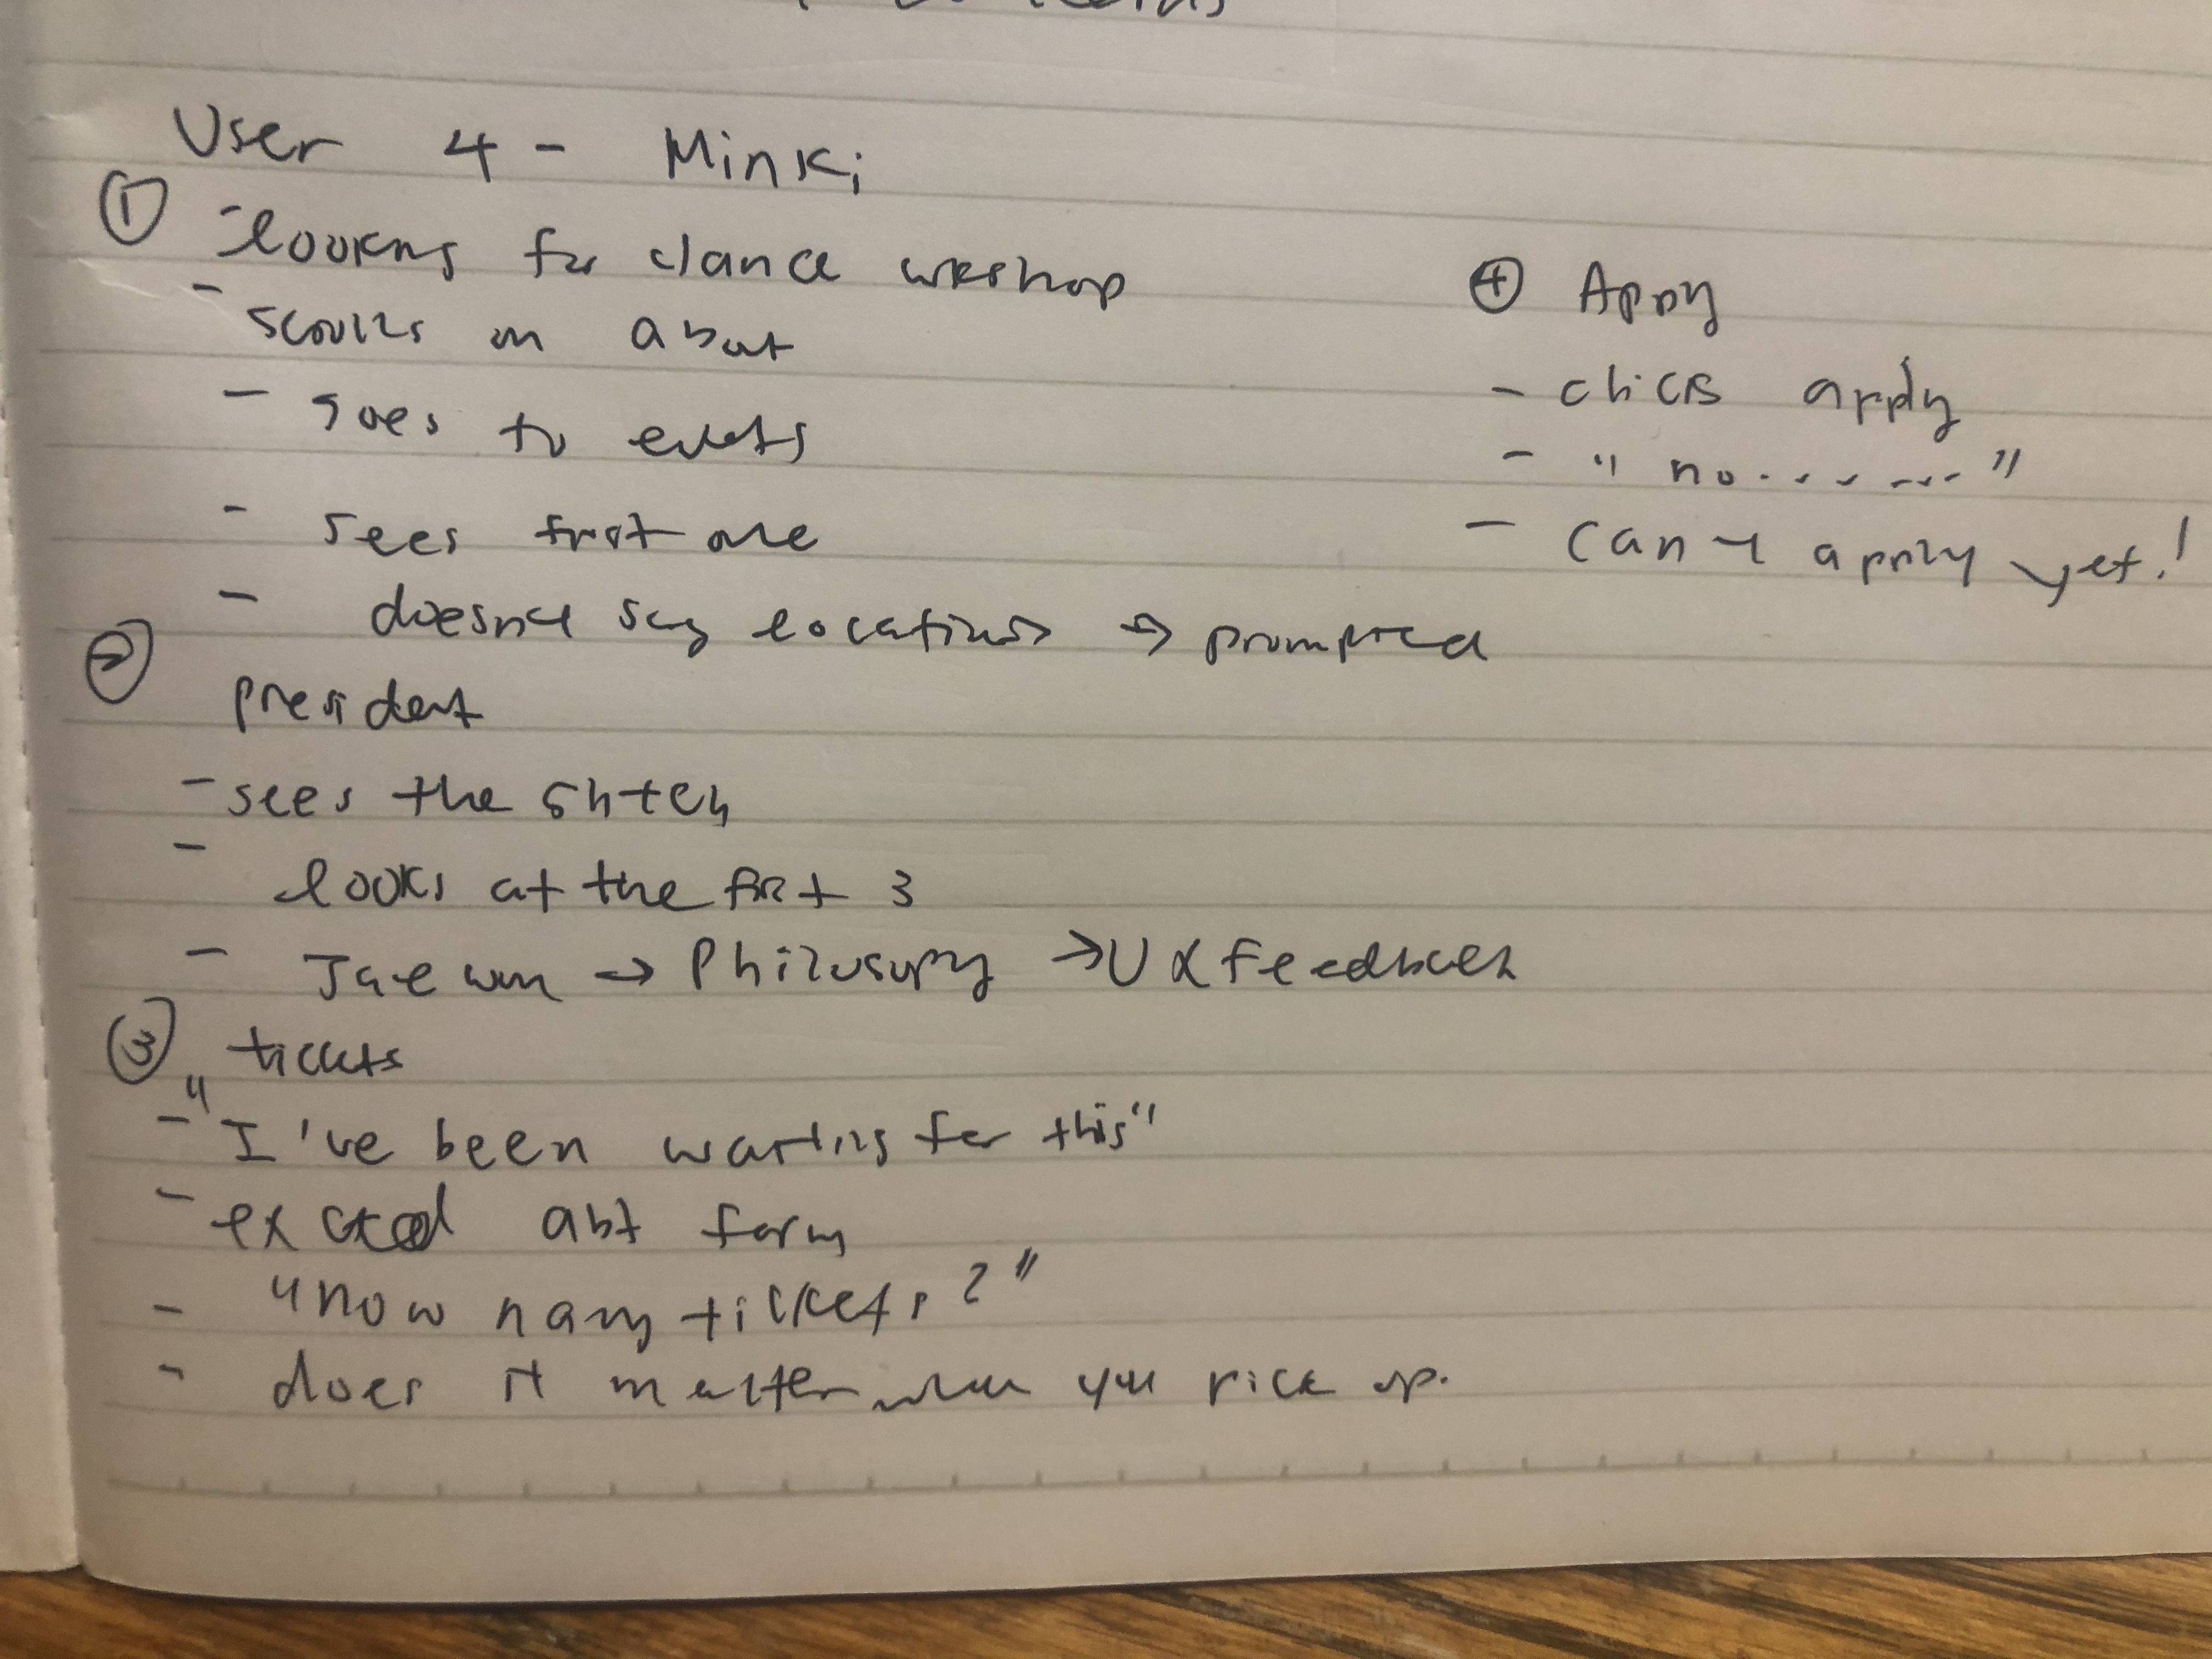 User 4 - Minki
① - looking for dance workshop
- scrolls on about
- goes to events
- sees first one
- doesn't say locations → prompted
② president
- sees the
- looks at the first 3
- Jaewon → Philosophy → UX feedback
③ tickets
- "I've been waiting for this"
- excited abt form
- "how many tickets?"
- does it matter when you pick up.
④ Apply
- clicks apply
- "no........"
- can't apply yet!